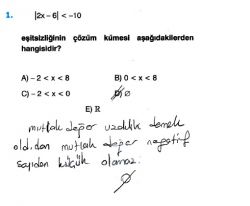 1. |2x – 6| < –10
eşitsizliğinin çözüm kümesi aşağıdakilerden
hangisidir?
A) – 2 < x < 8 B) 0 < x < 8
C) – 2 < x < 0 D) ∅
E) R
mutlak değer uzaklık demek
old.dan mutlak değer negatif
sayıdan küçük olamaz.
∅